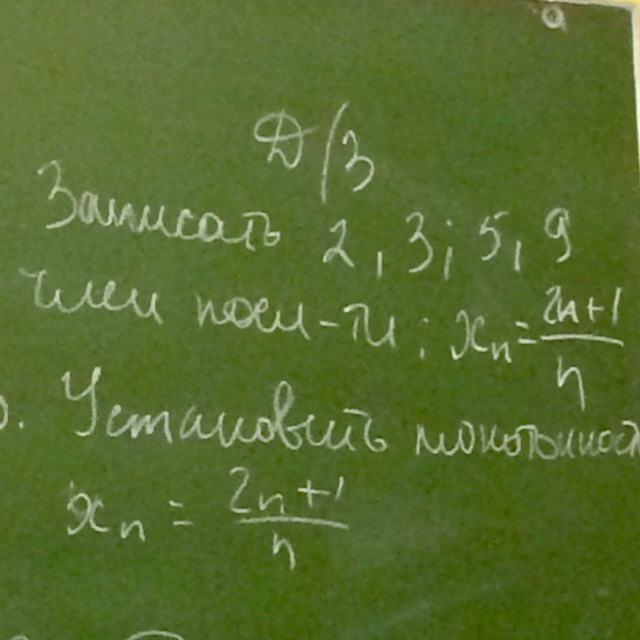 Д/З
Записать 2, 3; 5, 9
член посл-ти: xₙ = (2n+1)/n
Установить монотонност
xₙ = (2n+1)/n